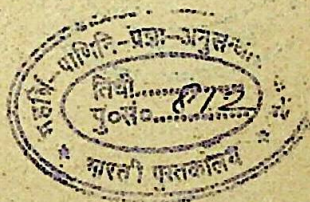 महर्षि-पाणिनि-प्रज्ञा-अनुसन्धान
तिथी..............
पु०सं०.......812
भारती पुस्तकालय